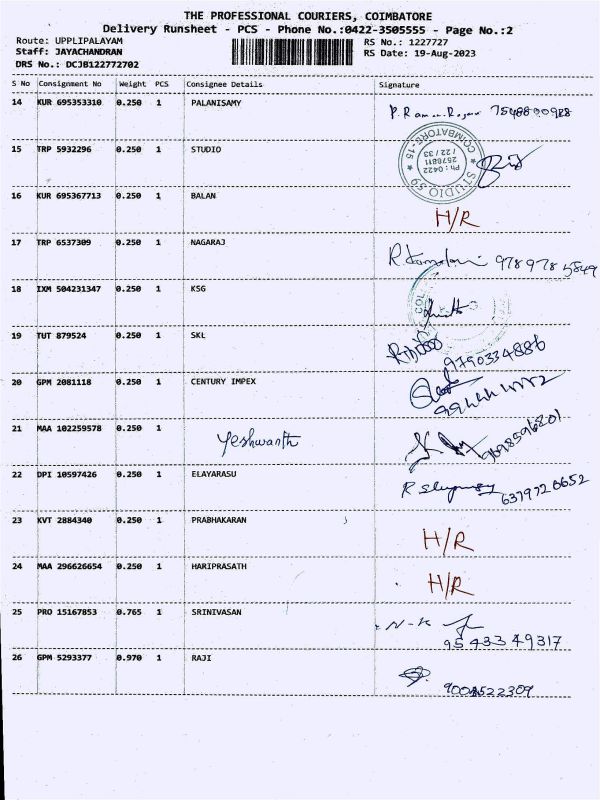 THE PROFESSIONAL COURIERS, COIMBATORE
Delivery Runsheet - PCS - Phone No.:0422-3505555 - Page No.:2
Route: UPPLIPALAYAM RS No.: 1227727
Staff: JAYACHANDRAN RS Date: 19-Aug-2023
DRS No.: DCJB122772702
S No Consignment No Weight PCS Consignee Details Signature
14 KUR 695353310 0.250 1 PALANISAMY
15 TRP 5932296 0.250 1 STUDIO
STUDIO 59 COIMBATORE-15
Ph : 0422
2578811
/ 22 / 33
16 KUR 695367713 0.250 1 BALAN H/R
17 TRP 6537309 0.250 1 NAGARAJ
18 IXM 504231347 0.250 1 KSG
19 TUT 879524 0.250 1 SKL 9790334886
20 GPM 2081118 0.250 1 CENTURY IMPEX
21 MAA 102259578 0.250 1 Yeshwanth 9698596801
22 DPI 10597426 0.250 1 ELAYARASU
23 KVT 2884340 0.250 1 PRABHAKARAN H/R
24 MAA 296626654 0.250 1 HARIPRASATH H/R
25 PRO 15167853 0.765 1 SRINIVASAN 9543349317
26 GPM 5293377 0.970 1 RAJI 9004522309